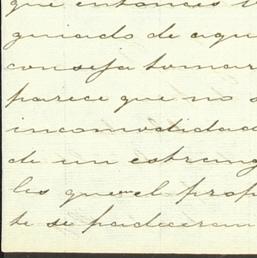 que entonces
guiado de aqu
conseja tomar
parece que no s
incomodidad
de un estrang
les que el prop
te se padeceran